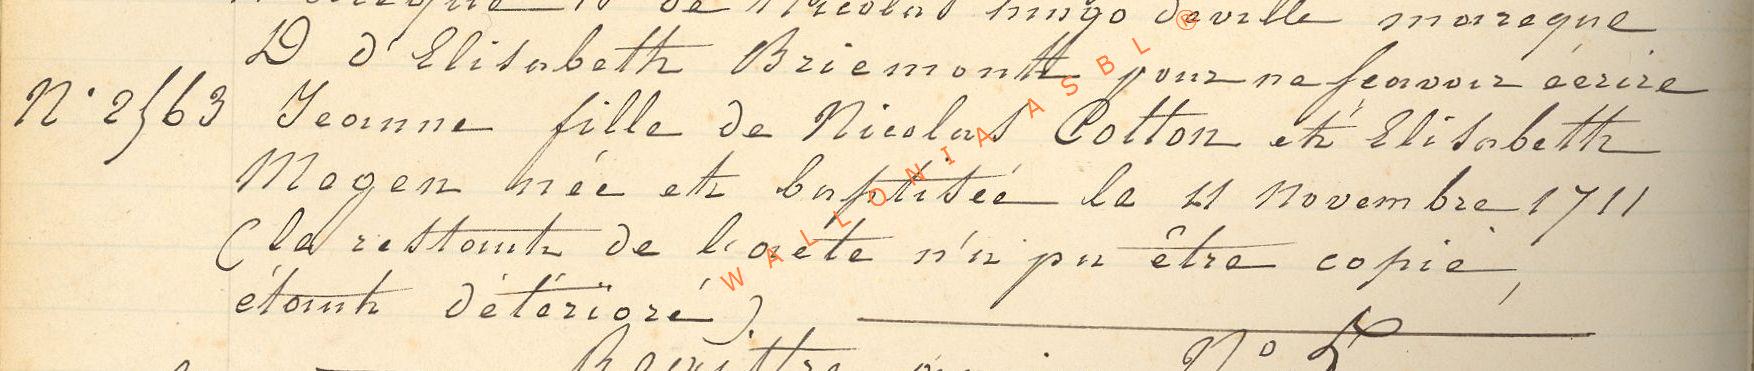 de Nicolas hugo deville mareque
D d'Elisabeth Briemont pour ne scavoir écrire
N° 2563 Jeanne fille de Nicolas Cotton et Elisabeth
Magen née et baptisée le 11 Novembre 1711
(le restant de l'acte n'a pu être copié,
étant détérioré).
N° 5
WALLONIA ASBL ®